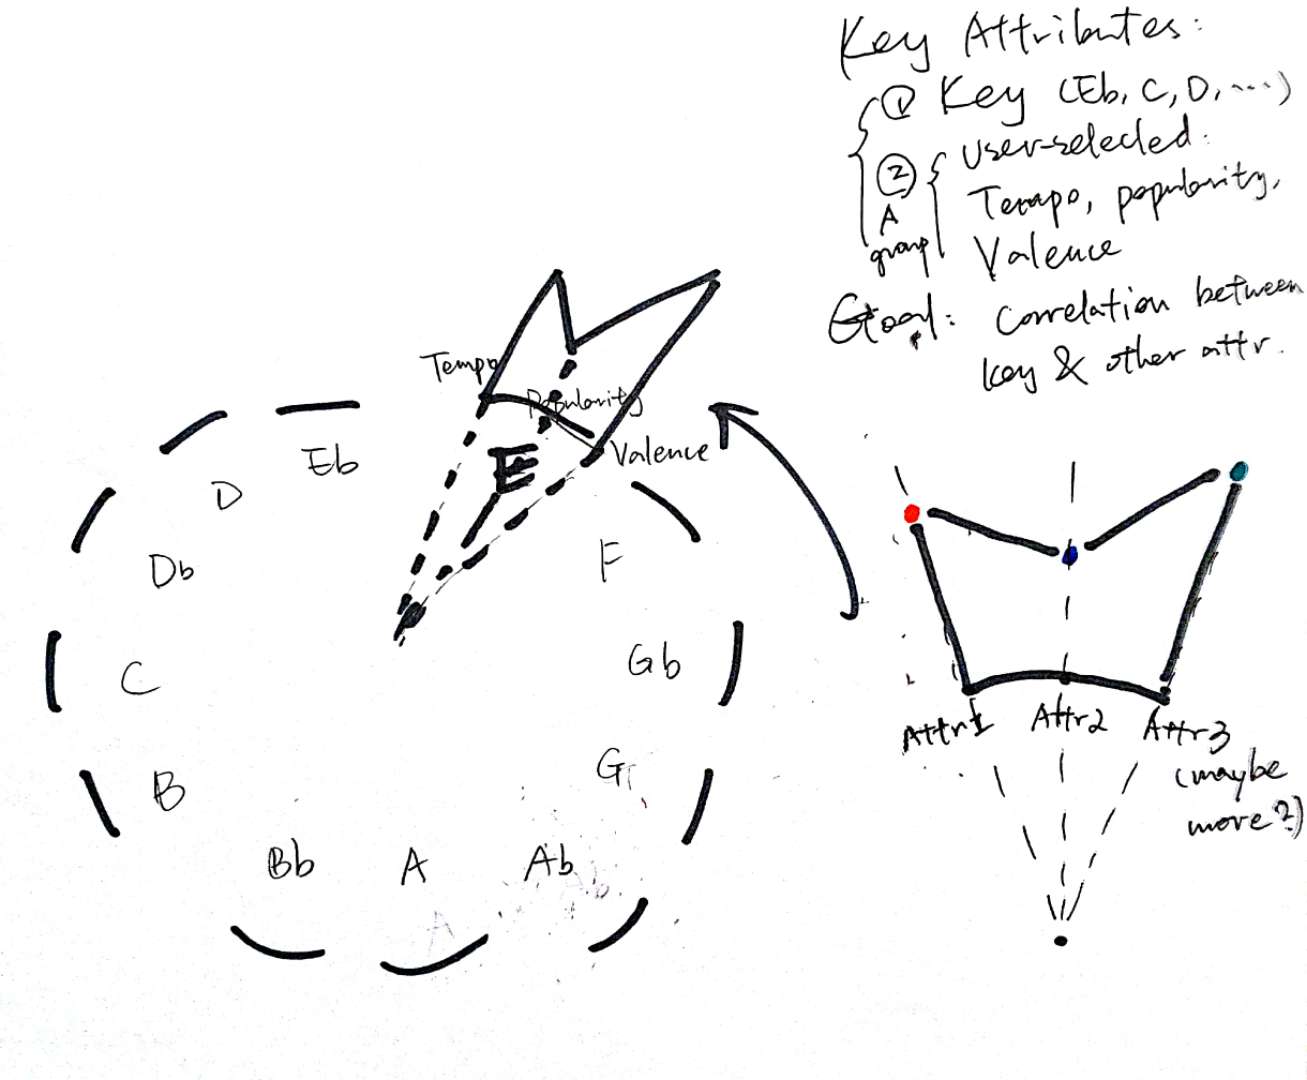 Key Attributes:
① Key (Eb, C, D, ....)
② A group
User-selected:
Tempo, popularity,
Valence
Goal: Correlation between
key & other attr.
Tempo
Popularity
Valence
E
Eb
D
Db
C
B
Bb
A
Ab
G
Gb
F
A
Ab
Attr1 Attr2 Attr3
(maybe
more?)